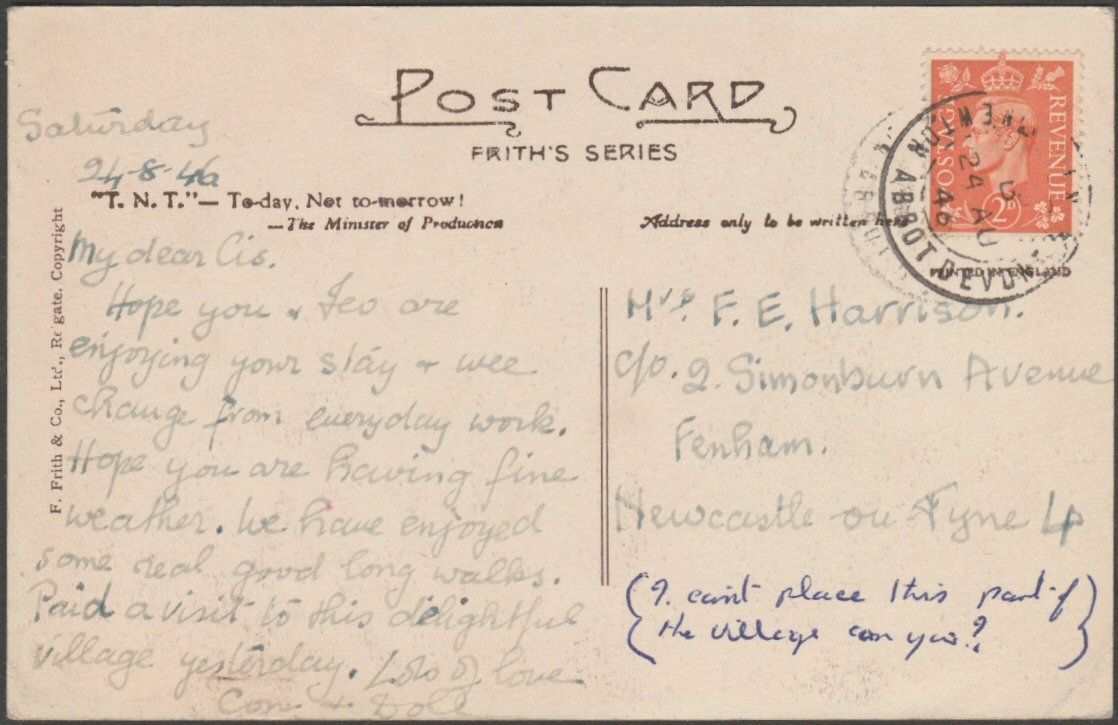 POST CARD
FRITH'S SERIES
"T. N. T."— To-day, Not to-morrow!
—The Minister of Production
Address only to be written here
PRINTED IN ENGLAND
F. Frith & Co., Ltd., Reigate. Copyright
POSTAGE
REVENUE
2D
NEWTON ABBOT DEVON
24 AU
46
Saturday
24-8-46
My dear Cis.
Hope you & Geo are
enjoying your stay & wee
change from everyday work.
Hope you are having fine
weather. We have enjoyed
some real good long walks.
Paid a visit to this delightful
village yesterday. Lots of love
Con & Doll
Mrs. F. E. Harrison.
c/o. 2. Simonburn Avenue
Fenham.
Newcastle on Tyne 4
(I can't place this part of
the village can you?)